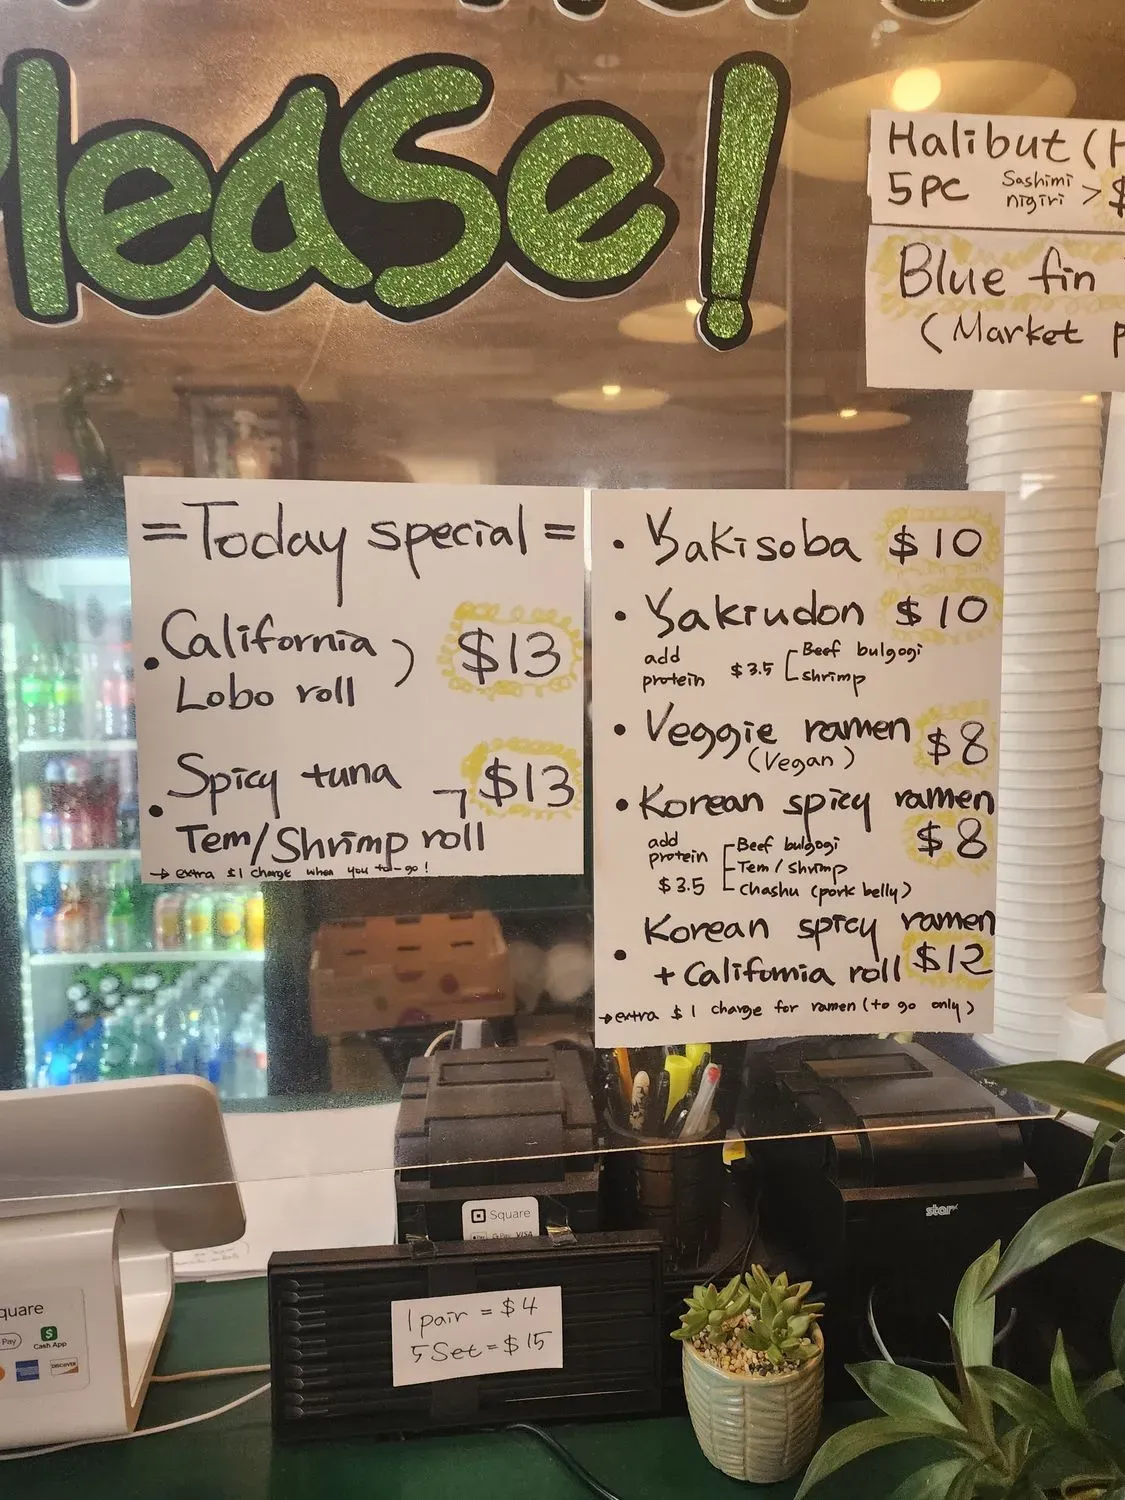 Please!
Halibut (H
5PC Sashimi nigiri > $
Blue fin
(Market p
=Today special=
• California
Lobo roll
) $13
• Spicy tuna
Tem/Shrimp roll
$13
→ extra $1 charge when you to-go!
• Yakisoba $10
• Yakiudon $10
add protein $3.5
Beef bulgogi
shrimp
• Veggie ramen $8
(Vegan)
• Korean spicy ramen
$8
add protein
$3.5
Beef bulgogi
Tem/shrimp
Chashu (pork belly)
• Korean spicy ramen
+ California roll $12
→ extra $1 charge for ramen (to go only)
Square
Pay VISA
star
1 pair = $4
5 Set = $15
quare
Pay
Cash App
DISCOVER